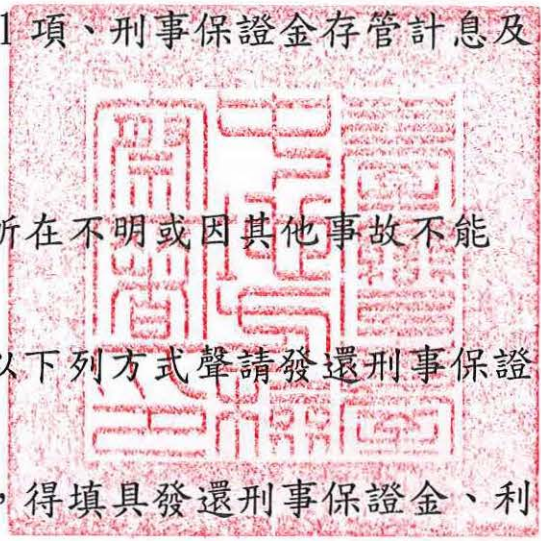 1 項、刑事保證金存管計息及
所在不明或因其他事故不能
以下列方式聲請發還刑事保證
，得填具發還刑事保證金、利